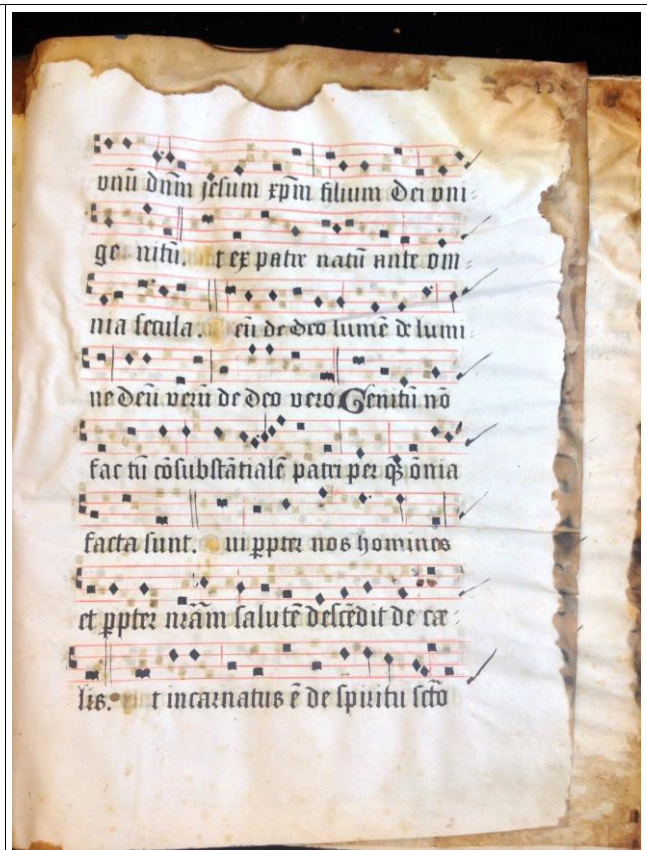 vnū dn̄m jesum xp̄m filium dei vni
ge nitū. t ex patre natū ante om
nia secula. eū de deo lumē de lumi
ne deū verū de deo vero. Genitū nō
fac tū cōsubstātialē patri per q̄ ōnia
facta sunt. ui ꝓpter nos homines
et ꝓpter nr̄ām salutē descēdit de cæ
lis. t incarnatus ē de spiritu scto